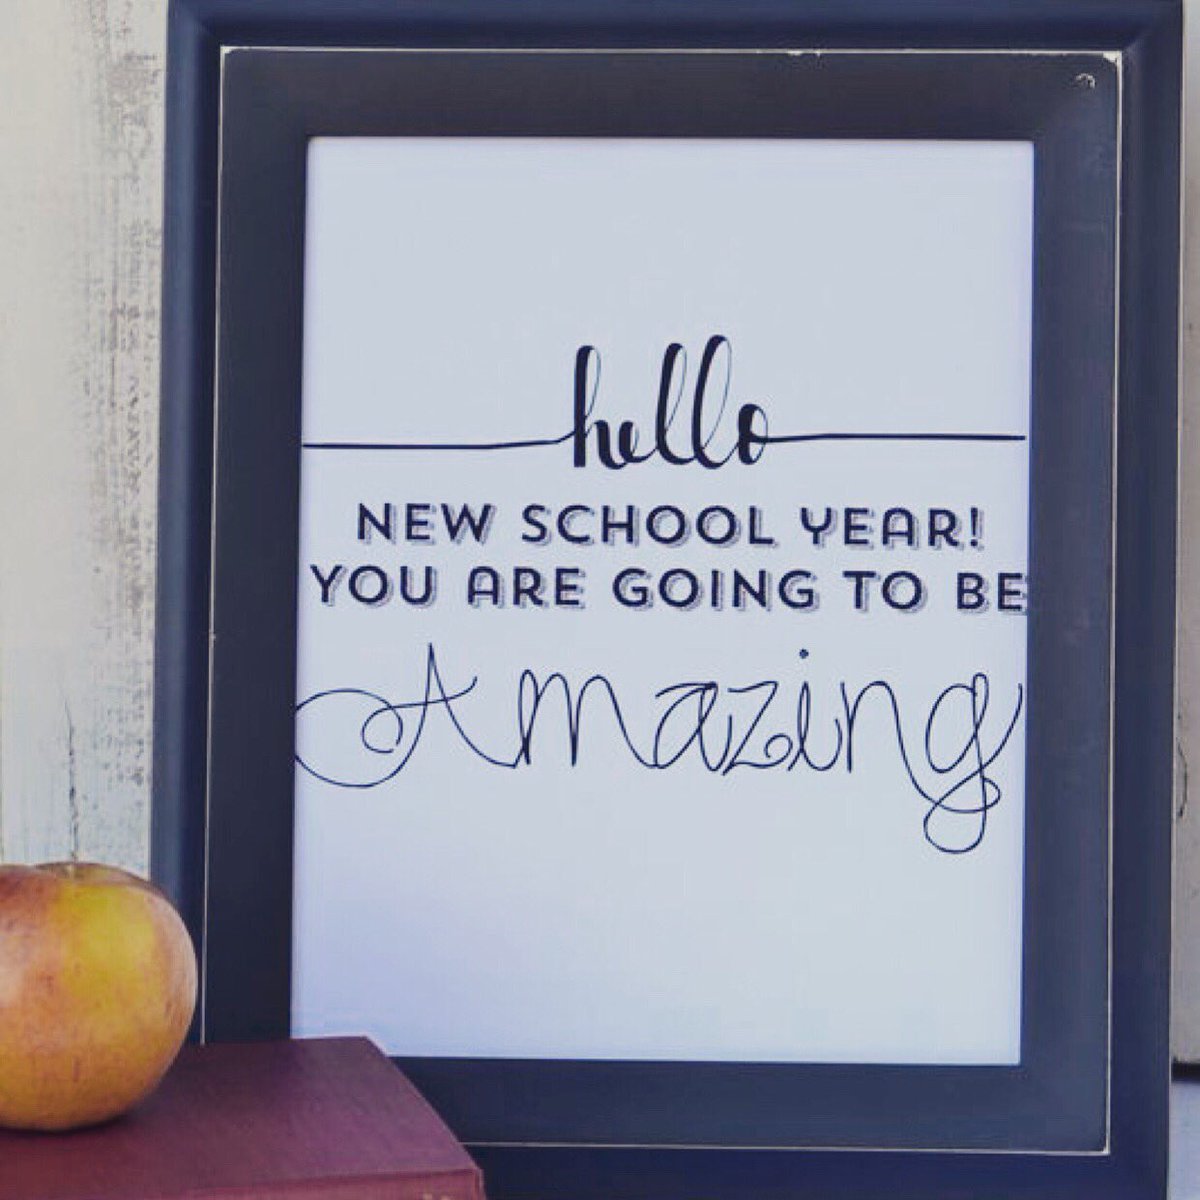 hello
NEW SCHOOL YEAR!
YOU ARE GOING TO BE
Amazing